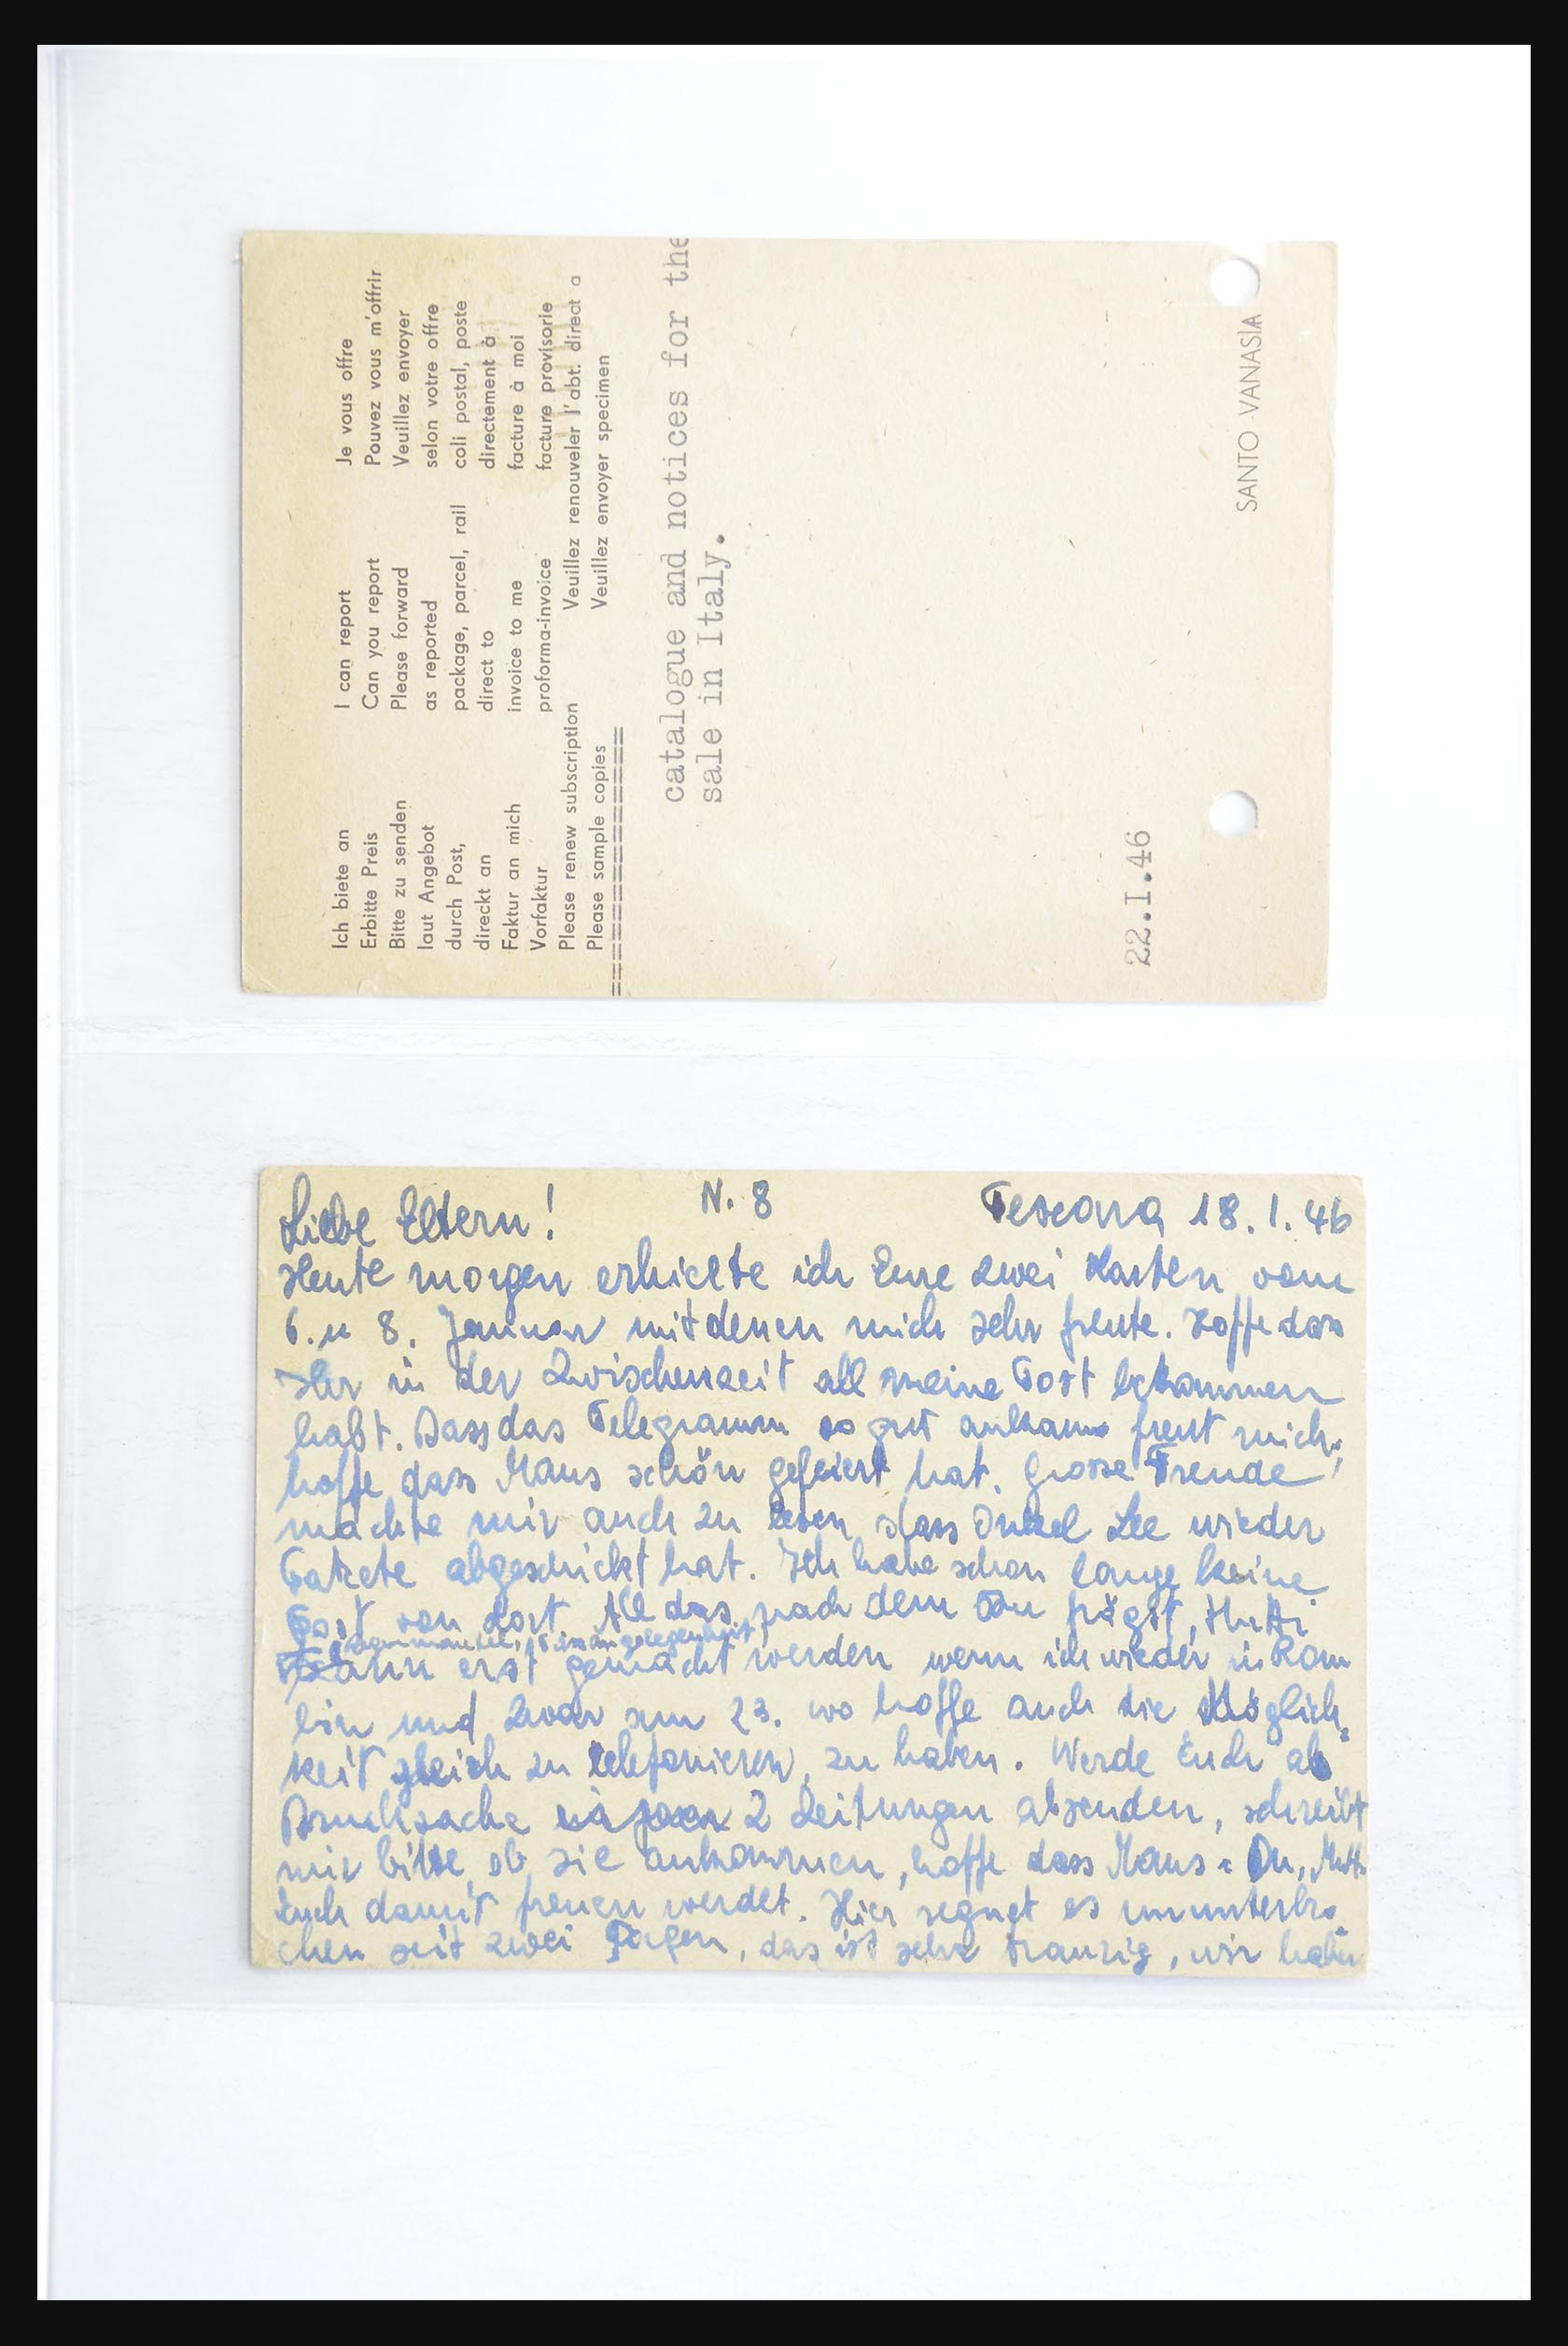 Ich biete an I can report Je vous offre
Erbitte Preis Can you report Pouvez vous m'offrir
Bitte zu senden Please forward Veuillez envoyer
laut Angebot as reported selon votre offre
durch Post, package, parcel, rail coli postal, poste
direckt an direct to directement à
Faktur an mich invoice to me facture à moi
Vorfaktur proforma-invoice facture provisorie
Please renew subscription Veuillez renouveler l'abt. direct a
Please sample copies Veuillez envoyer specimen
====================
catalogue and notices for the
sale in Italy.
22.I.46
SANTO VANASIA
Liebe Eltern! N. 8 Pescara 18.1.46
Heute morgen erhielte ich Eure zwei Karten vom
6. u 8. Januar mit denen mich sehr freute. Hoffe dass
Ihr in der Zwischenzeit all meine Post bekommen
habt. Dass das Telegramm so gut ankam freut mich,
hoffe dass Maus schön gefeiert hat. Grosse Freude
machte mir auch zu lesen dass Onkel Leo wieder
Pakete abgeschickt hat. Ich habe schon lange keine
Post von dort. All das nach dem Du frägst, Mutti
kann erst gemacht werden wenn ich wieder in Rom
bin und zwar am 23. wo hoffe auch die Möglich=
keit gleich zu telefonieren, zu haben. Werde Euch als
Drucksache 2 Zeitungen absenden, schreibt
mir bitte ob sie ankommen, hoffe dass Maus u Du, Mutti
Euch damit freuen werdet. Hier regnet es ununterbro=
chen seit zwei Tagen, das ist sehr traurig, wir haben